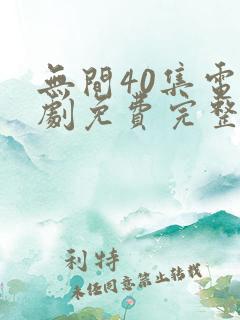 無間40集電
劇免費完整
利特
未經同意禁止轉載